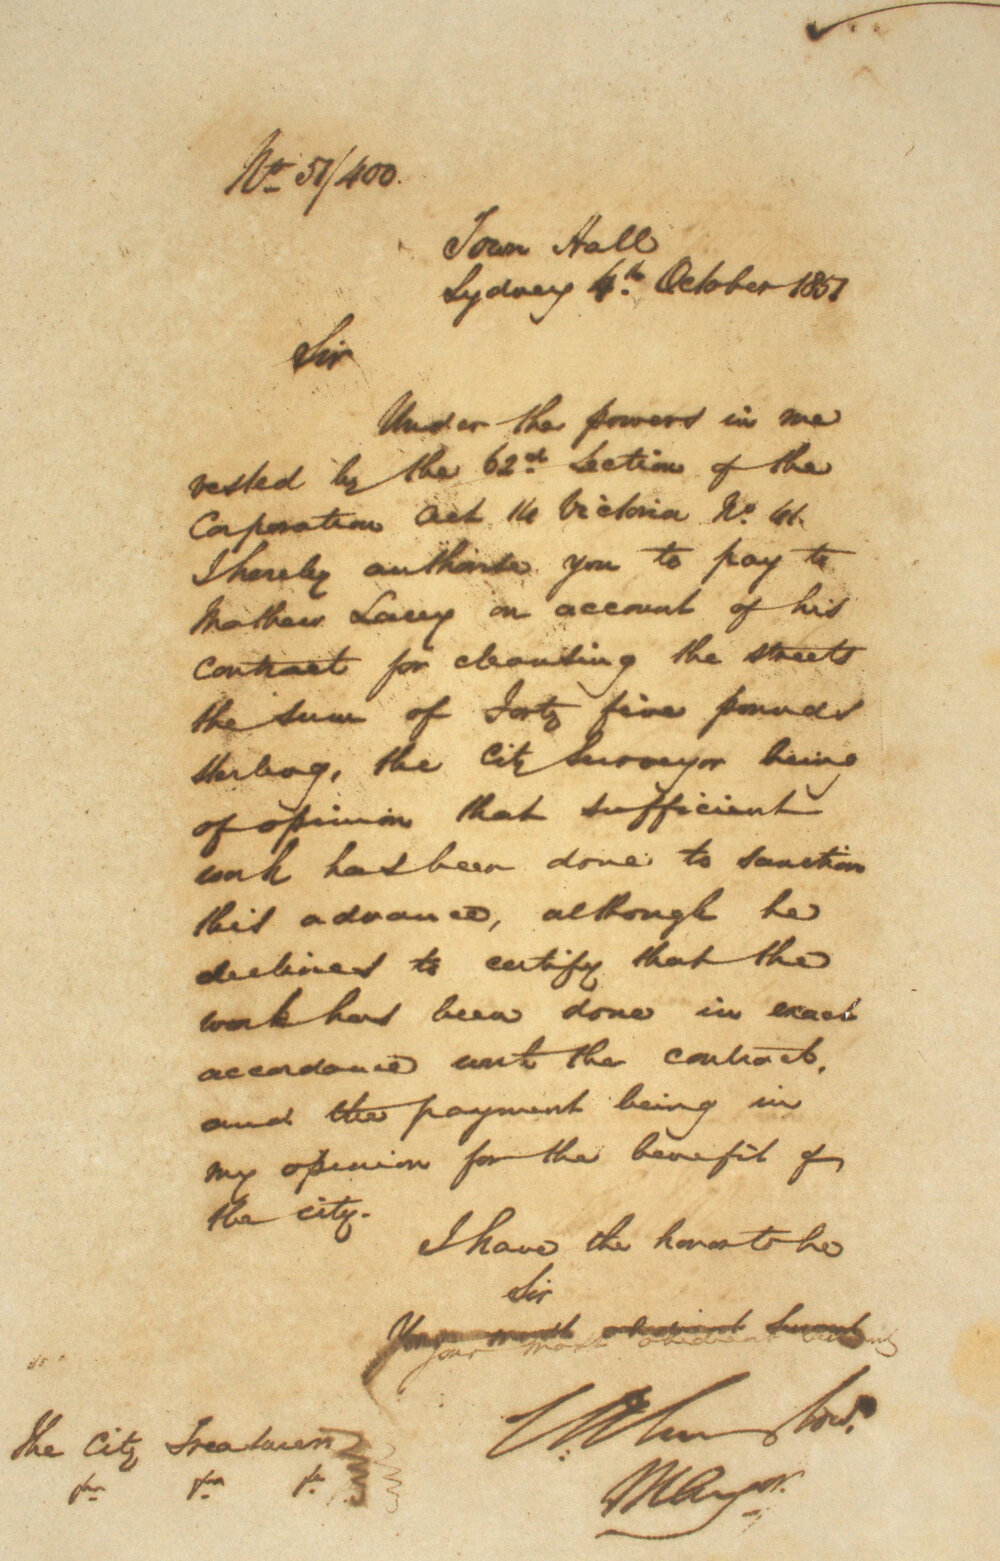 No. 51/400.
Town Hall
Sydney 4th. October 1851
Sir
Under the powers in me
vested by the 62nd. Section of the
Corporation Act 14 Victoria No. 41.
I hereby authorise you to pay to
Mathew Lacey on account of his
contract for cleansing the streets
the sum of Forty five pounds
sterling, the City Surveyor being
of opinion that sufficient
work has been done to sanction
this advance, although he
declines to certify that the
work has been done in exact
accordance with the contract,
and the payment being in
my opinion for the benefit of
the city.
I have the honor to be
Sir
Your most obedient Servant
your most obedient
The City Treasurer
Mayor.